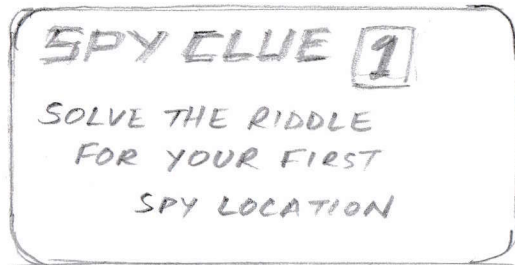 SPY CLUE 1
SOLVE THE RIDDLE
FOR YOUR FIRST
SPY LOCATION